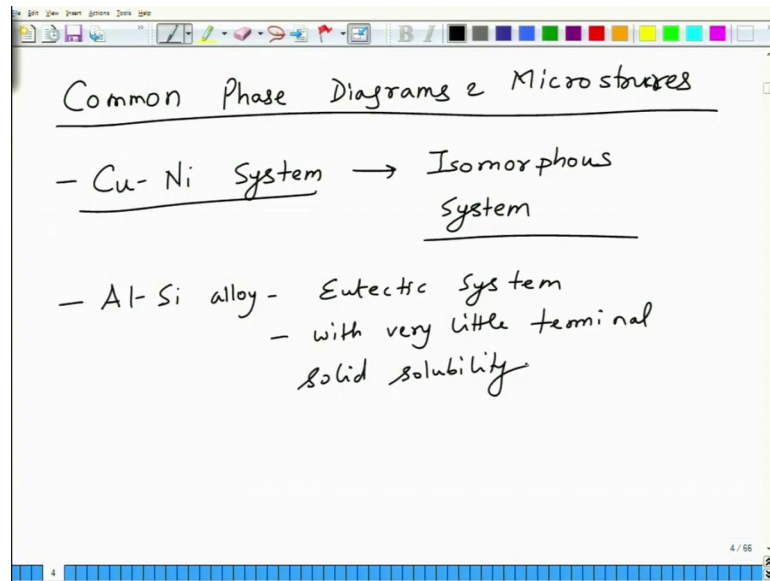 File Edit View Insert Actions Tools Help
B I
Common Phase Diagrams & Microstrures
- Cu-Ni System → Isomorphous
System
- Al-Si alloy - Eutectic System
- with very little terminal
solid solubility
4/66
4